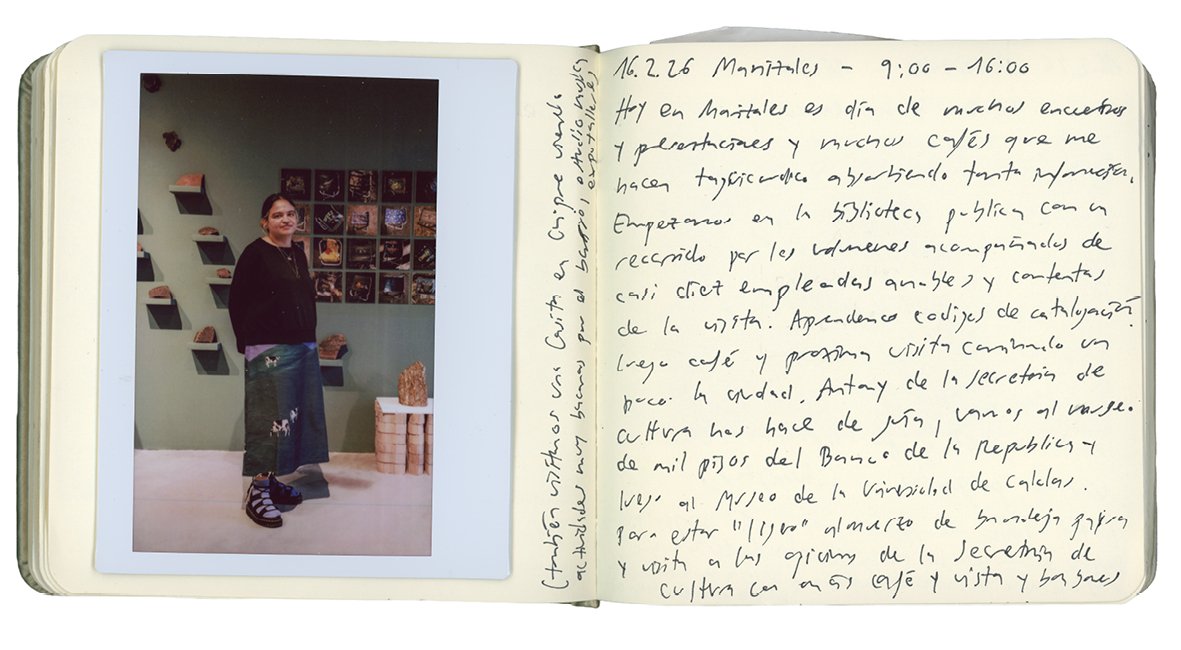 16.2.26 Manizales - 9:00 - 16:00
Hoy en Manizales es día de muchos encuentros
y presentaciones y muchos cafés que me
hacen absorbiendo tanta información.
Empezamos en la biblioteca publica con un
recorrido por los volumenes acompañados de
casi diez empleadas amables y contentas
de la visita. Aprendemos codigos de catalogación
luego café y proxima visita caminando un
poco la ciudad. Antony de la secretaria de
cultura nos hace de guía, vamos al museo
de mil pisos del Banco de la Republica y
luego al Museo de la Universidad de Caldas.
Para estar "ligero" almuerzo de bandeja paisa
y visita a las oficinas de la secretaría de
cultura con más café y vista y bombones
(también visitamos una casita en viendo
actividades muy bacanas por el barrio, estudio